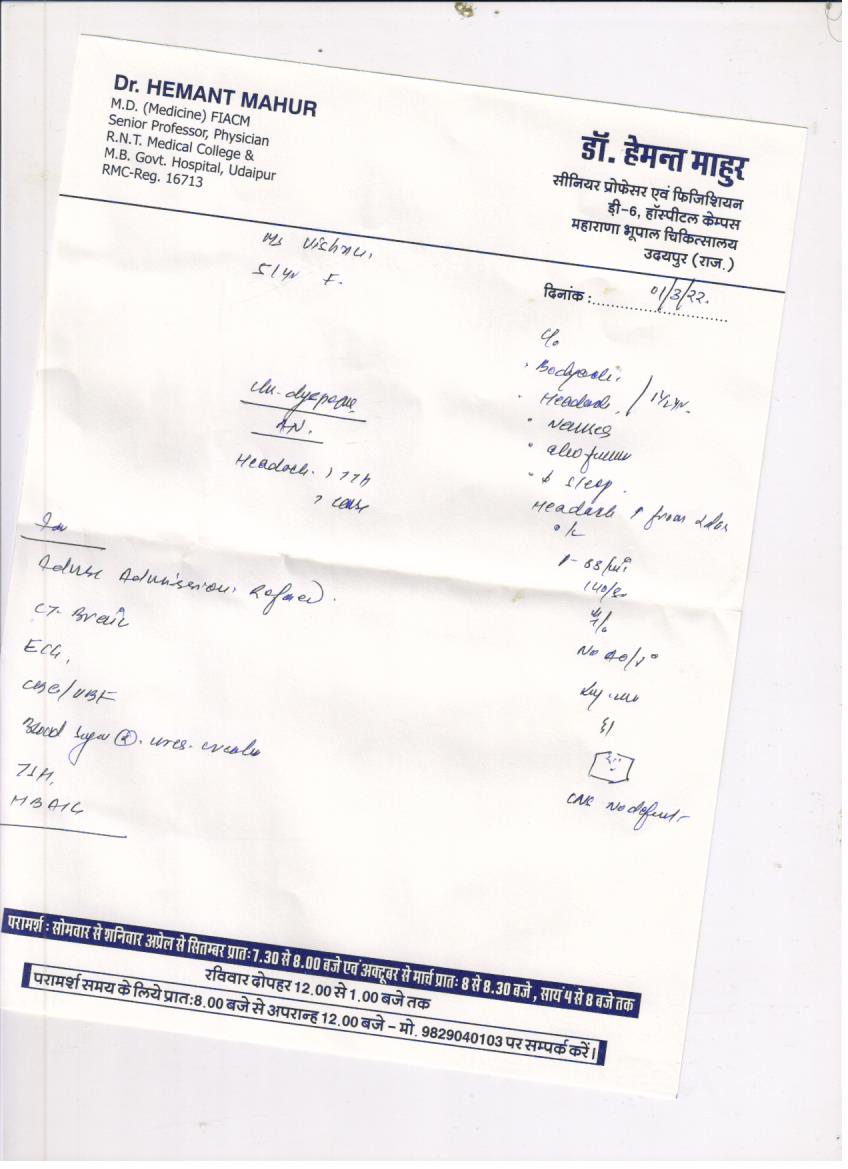 Dr. HEMANT MAHUR
M.D. (Medicine) FIACM
Senior Professor, Physician
R.N.T. Medical College &
M.B. Govt. Hospital, Udaipur
RMC-Reg. 16713
डॉ. हेमन्त माहुर
सीनियर प्रोफेसर एवं फिजिशियन
ड़ी-6, हॉस्पीटल केम्पस
महाराणा भूपाल चिकित्सालय
उदयपुर (राज.)
दिनांक : 01/3/22.
Ms Vishnu.
51 yr F.
AN.
Headach. ? TTH
?
Advise Admission. Refused.
CT- Brain
ECG,
CBC/
Blood Sugar (R). urea.
TSH,
HBA1C
C/o
Bodyache
Headach
Nausea
↓ Sleep.
Headach ↑ from
P- 88/mi
140/80
No
CNS No deficit-
परामर्श : सोमवार से शनिवार अप्रेल से सितम्बर प्रातः 7.30 से 8.00 बजे एवं अक्टूबर से मार्च प्रातः 8 से 8.30 बजे , सायं 4 से 8 बजे तक
रविवार दोपहर 12.00 से 1.00 बजे तक
परामर्श समय के लिये प्रातः8.00 बजे से अपरान्ह 12.00 बजे – मो. 9829040103 पर सम्पर्क करें।